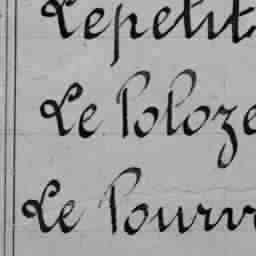 Lepetit
Le Poloze
Le Pourv